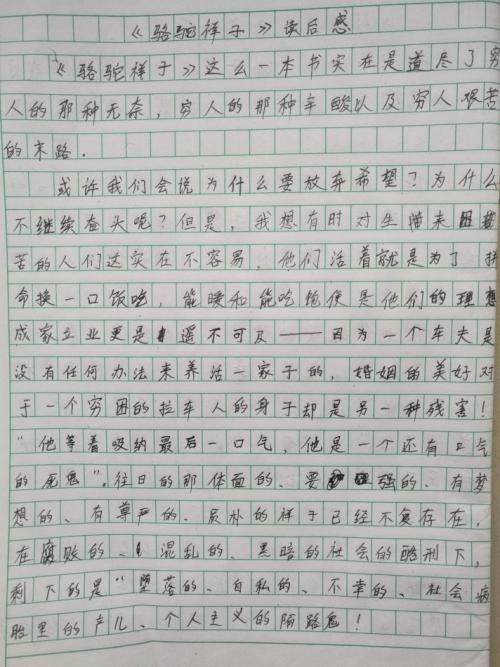 《骆驼祥子》读后感
《骆驼祥子》这么一本书实在是道尽了穷
人的那种无奈，穷人的那种辛酸以及穷人艰苦
的末路.
或许我们会说为什么要放弃希望？为什么
不继续奋头呢？但是，我想有时对生活来困
苦的人们这实在不容易，他们活着就是为了拼
命换一口饭吃，能暖和能吃饱便是他们的理想
成家立业更是遥不可及——因为一个车夫是
没有任何办法来养活一家子的，婚姻的美好对
于一个穷困的拉车人的身子却是另一种残害！
"他等着吸纳最后一口气，他是一个还有口气
的死鬼"，往日的那体面的、要强的、有梦
想的、有尊严的、质朴的祥子已经不复存在，
在腐败的、混乱的、黑暗的社会的酷刑下，
剩下的是"堕落的、自私的、不幸的、社会病
胎里的产儿、个人主义的陌路鬼！